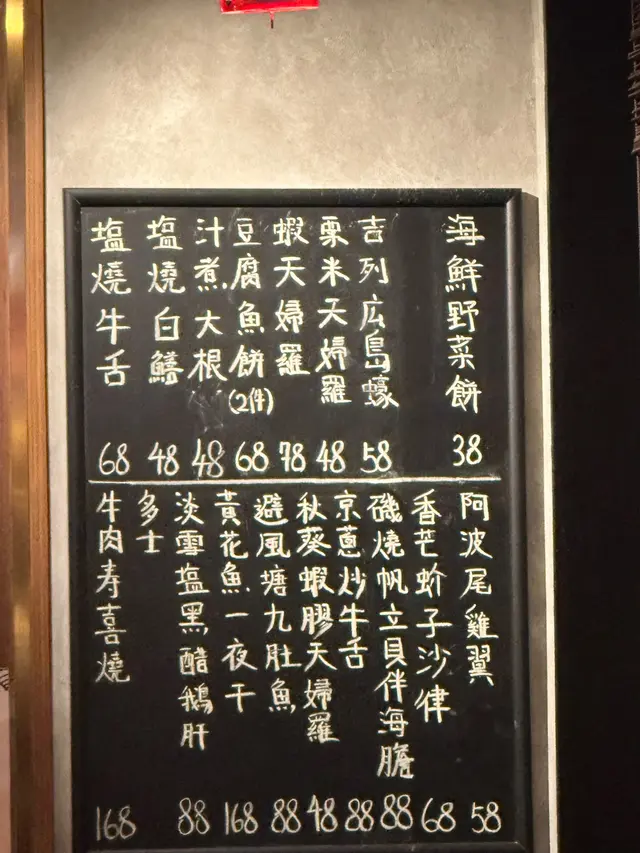 海鮮野菜餅 38
吉列広島蠔 58
栗米天婦羅 48
蝦天婦羅 78
豆腐魚餅(2件) 68
汁煮大根 48
塩燒白鱔 48
塩燒牛舌 68
阿波尾雞翼 58
香芒蚧子沙律 68
磯燒帆立貝伴海膽 88
京蔥炒牛舌 88
秋葵蝦膠天婦羅 48
避風塘九肚魚 88
黃花魚一夜干 168
淡雪塩黑醋鵝肝 88
多士
牛肉寿喜燒 168